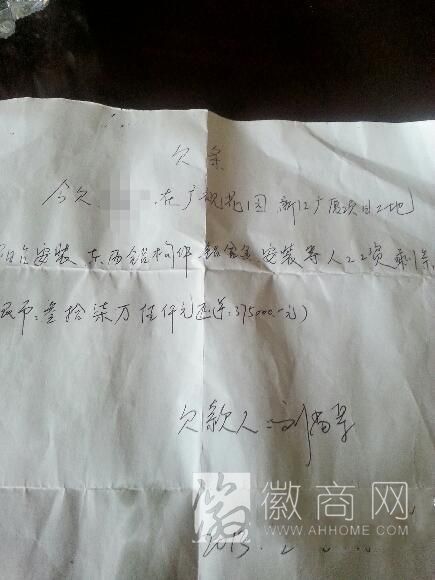 欠条
今欠 在广视花园 新江广厦项目工地
阳台安装 东西铝构件 铝合金安装等人工工资剩余
民币:叁拾柒万伍仟元正(¥:375000.00元)
欠款人:刘
徽商网
WWW.AHHOME.COM
2013. 2